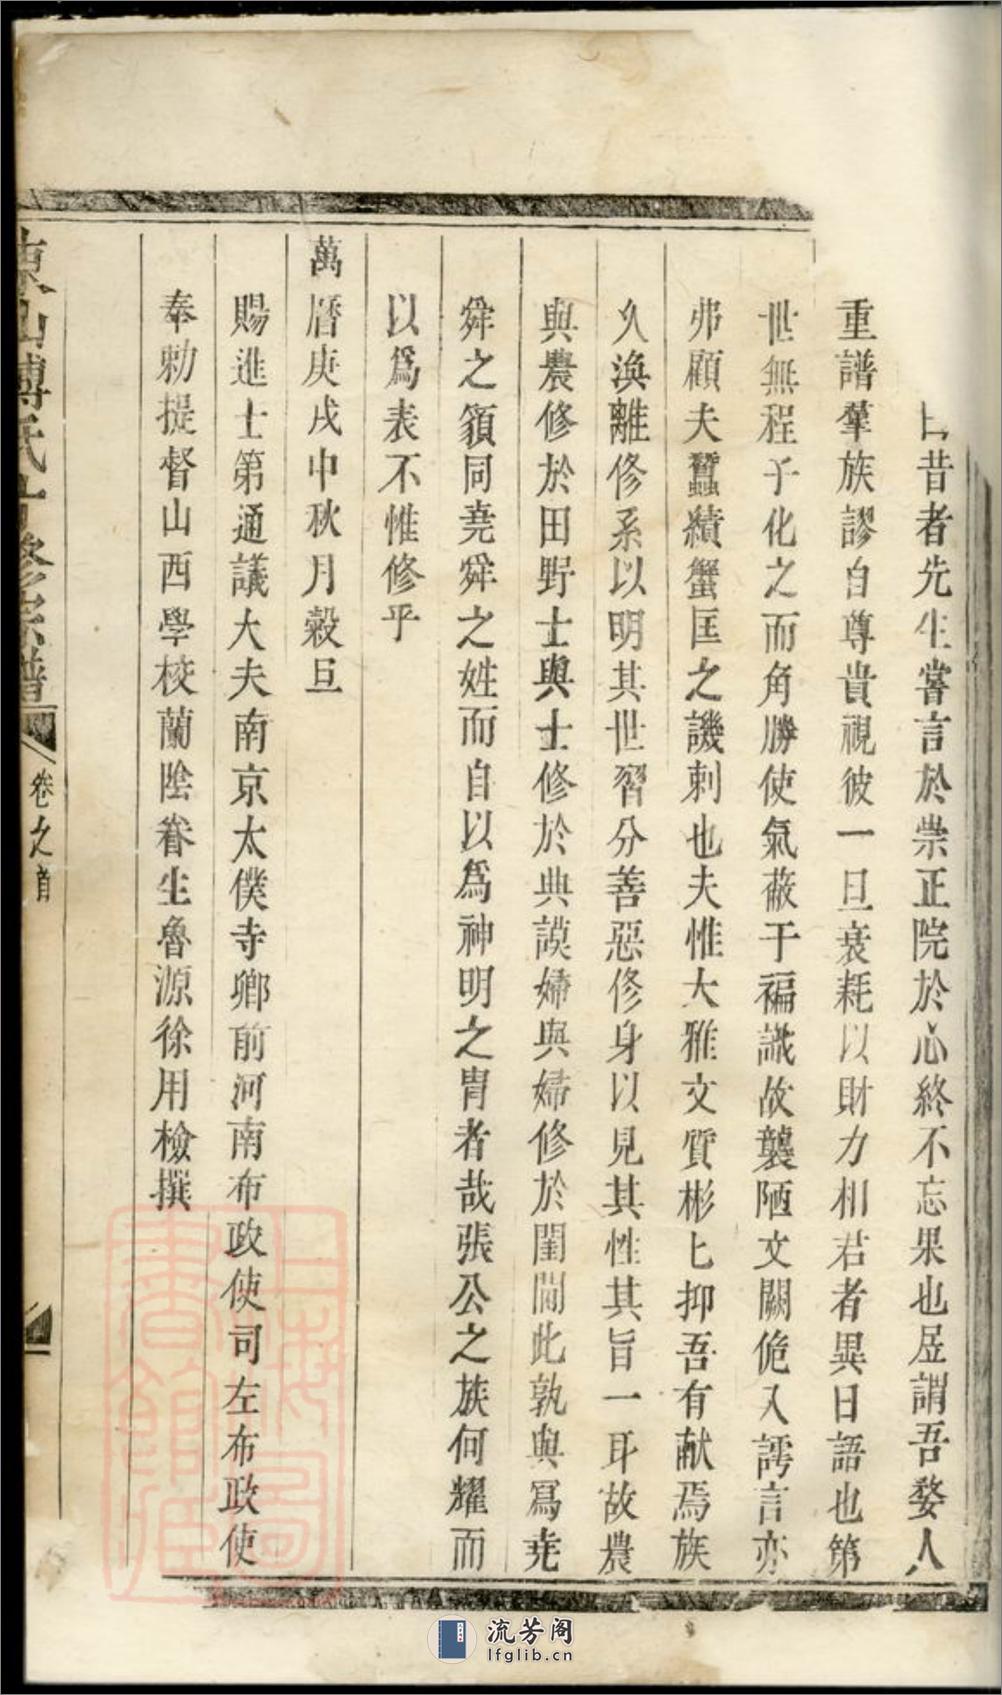 昔者先生嘗言於崇正院於心終不忘果也居謂吾婺人
重譜羣族謬自尊貴視彼一旦衰耗以財力相君者異日語也第
世無程子化之而角勝使氣蔽于褊識故襲陋文關傀入誇言亦
弗顧夫蠶績蟹匡之譏刺也夫惟大雅文質彬匕抑吾有献焉族
久渙離修系以明其世習分善惡修身以見其性其旨一耳故農
與農修於田野士與士修於典謨婦與婦修於閨閫此孰與冩尭
舜之顙同堯舜之姓而自以爲神明之胄者哉張公之族何耀而
以爲表不惟修乎
萬曆庚戌中秋月穀旦
賜進士第通議大夫南京太僕寺卿前河南布政使司左布政使
奉勅提督山西學校蘭隂眷生魯源徐用檢撰
東山傅氏十修宗譜
卷之首
上海圖書館藏
流芳阁
lfglib.cn